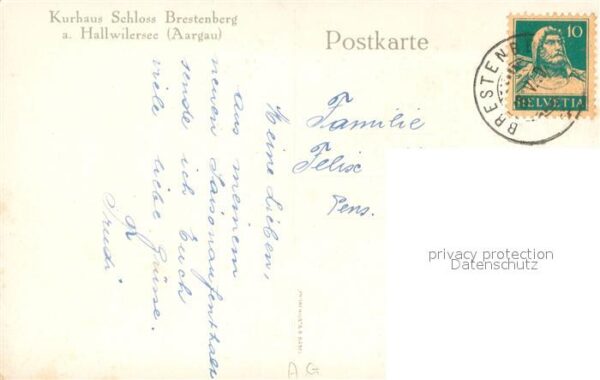 Kurhaus Schloss Brestenberg
a. Hallwilersee (Aargau)
Postkarte
10
HELVETIA
BRESTENB
Familie
Felix
Pens.
Meine Lieben,
Aus meinem
neuen Saisonaufenthalt
sende ich Euch
viele liebe Grüsse.
Trudi
privacy protection
Datenschutz
AG